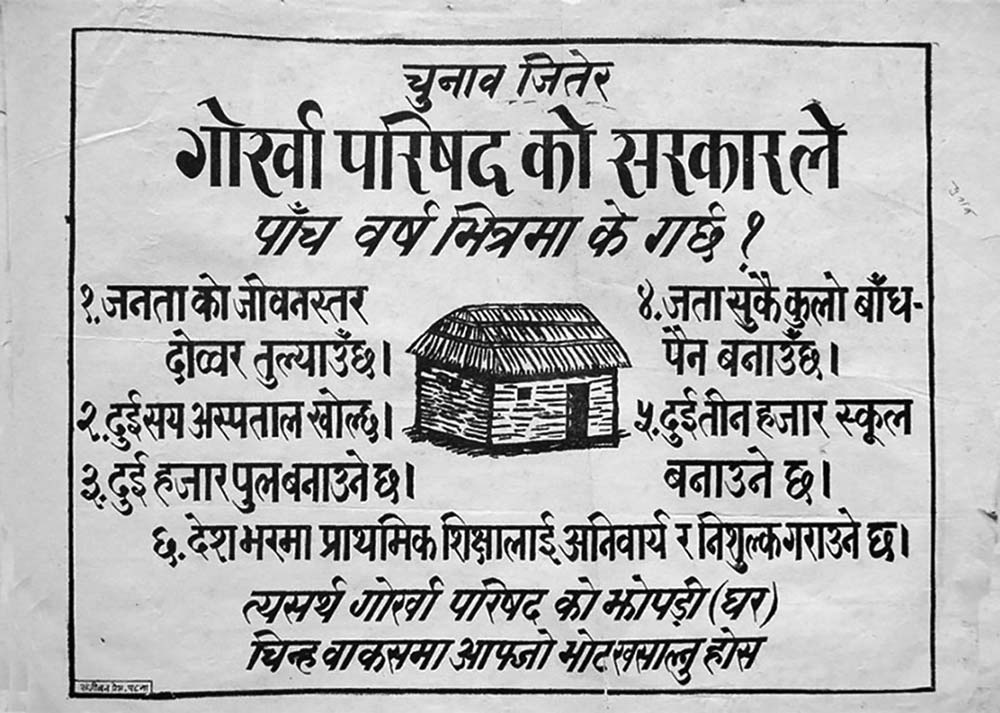 चुनाव जितेर
गोर्खा परिषद को सरकारले
पाँच वर्ष भित्रमा के गर्छ ?
१. जनता को जीवनस्तर
दोव्वर तुल्याउँछ।
२. दुई सय अस्पताल खोल्छ।
३. दुई हजार पुल बनाउने छ।
४. जता सुकै कुलो बाँध-
पैन बनाउँछ।
५. दुई तीन हजार स्कूल
बनाउने छ।
६. देश भरमा प्राथमिक शिक्षालाई अनिवार्य र निशुल्क गराउने छ।
त्यसर्थ गोर्खा परिषद को झोपडी (घर)
चिन्ह वाकसमा आफ्नो भोट खसाल्नु होस